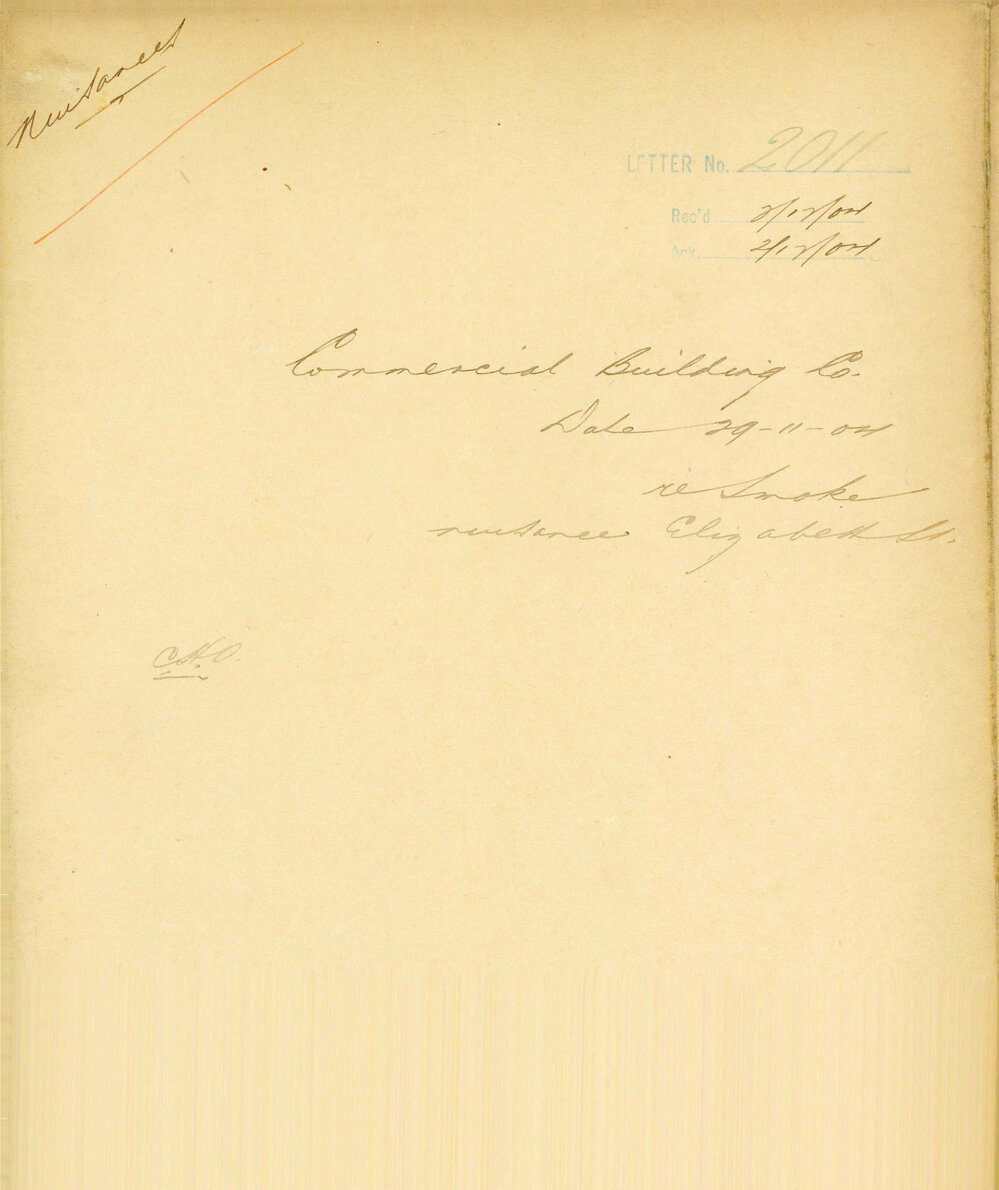 Nuisances
LETTER No. 2011
Rec'd 2/12/04
Ack. 2/12/04
Commercial Building Co.
Date 29-11-04
re Smoke
nuisance Elizabeth St.
C.H.O.